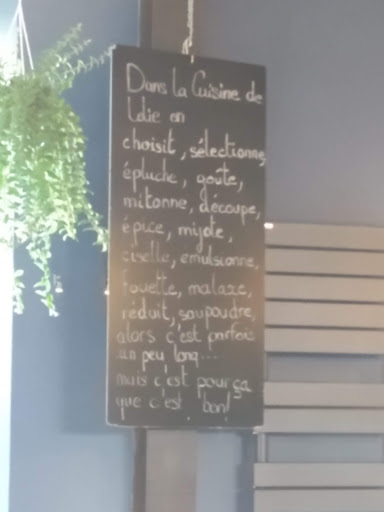 Dans la Cuisine de
Ldie on
choisit, sélectionne,
épluche, goûte,
mitonne, découpe,
épice, mijote,
ciselle, emulsionne,
fouette, malaxe,
réduit, saupoudre,
alors c'est parfois
un peu long...
mais c'est pour ça
que c'est bon!